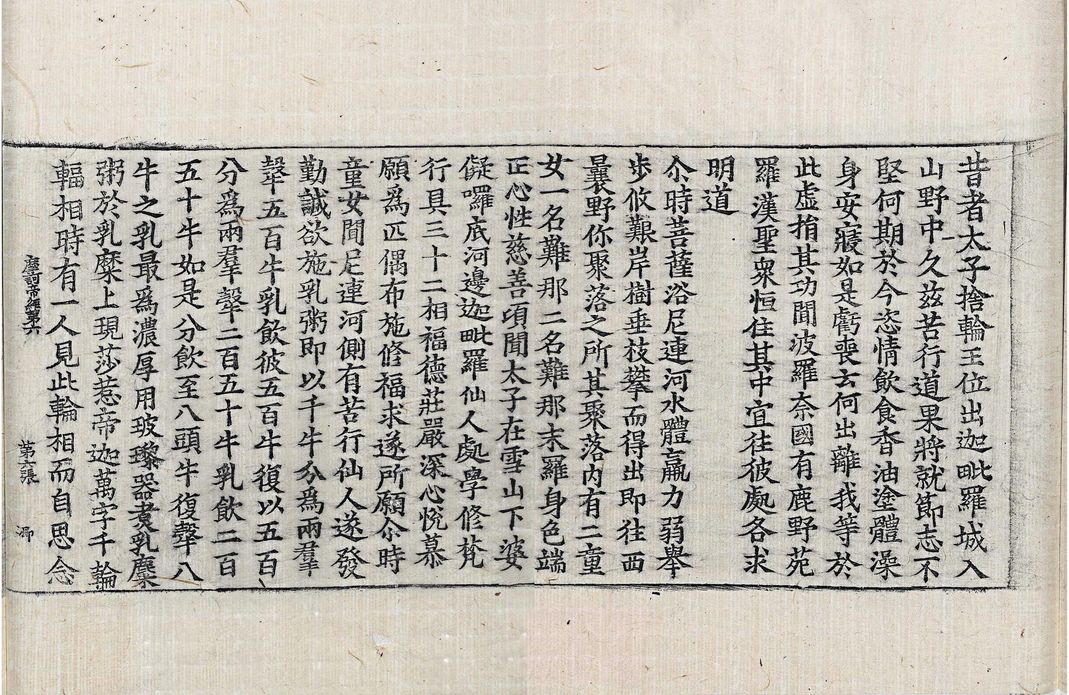 昔者太子捨輪王位出迦毗羅城入
山野中久兹苦行道果將就節志不
堅何期於今恣情飲食香油塗體澡
身安寢如是虧喪去何出離我等於
此虛捐其功聞波羅奈國有鹿野苑
羅漢聖衆恒住其中宜往彼處各求
明道
尒時菩薩浴尼連河水體羸力弱舉
步攸艱岸樹垂枝攀而得出即往西
曩野你聚落之所其聚落内有二童
女一名難那二名難那末羅身色端
正心性慈善項聞太子在雪山下婆
儗囉底河邊迦毗羅仙人處學修梵
行具三十二相福德莊嚴深心悅慕
願爲匹偶布施修福求遂所願尒時
童女聞尼連河側有苦行仙人遂發
勤誠欲施乳粥即以千牛分爲兩羣
𤛗五百牛乳飲彼五百牛復以五百
分爲兩羣𤛗二百五十牛乳飲二百
五十牛如是分飲至八頭牛復𤛗八
牛之乳最爲濃厚用玻瓈器煑乳糜
粥於乳糜上現莎惹帝迦萬字千輪
輻相時有一人見此輪相而自思念
摩訶帝經第六 第六張